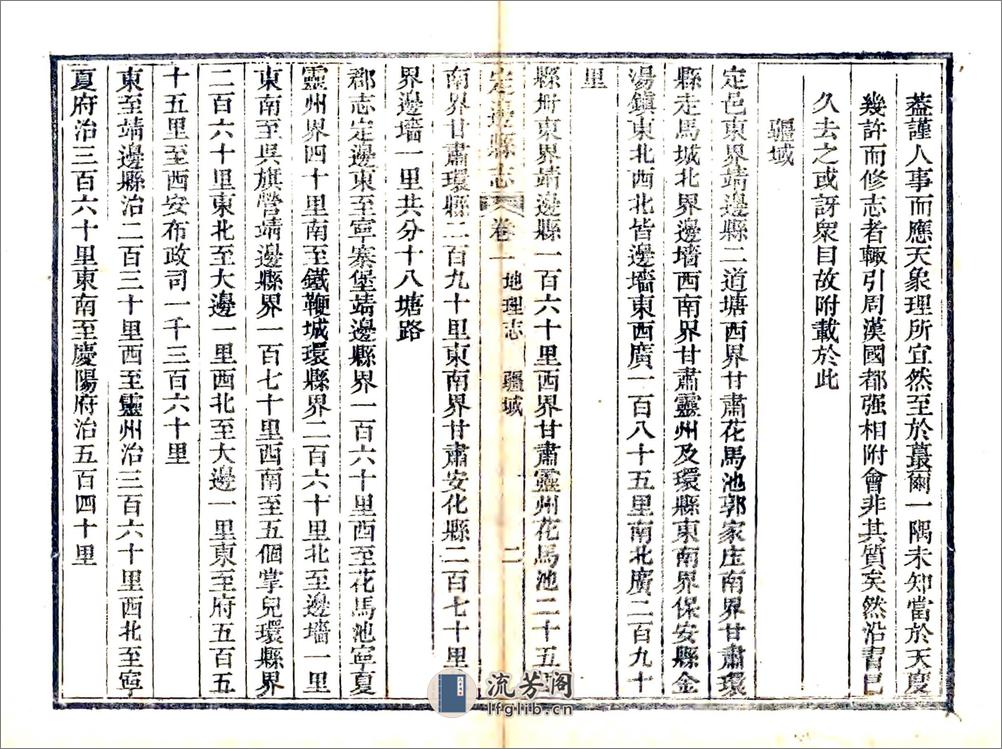 蓋謹人事而應天象理所宜然至於蕞爾一隅未知當於天度
幾許而修志者輒引周漢國都强相附會非其質矣然沿習已
久去之或訝眾目故附載於此
疆域
定邑東界靖邊縣二道塘西界甘肅花馬池郭家庄南界甘肅環
縣走馬城北界邊墻西南界甘肅靈州及環縣東南界保安縣金
湯鎮東北西北皆邊墻東西廣一百八十五里南北廣二百九十
里
縣册東界靖邊縣一百六十里西界甘肅靈州花馬池二十五
定邊縣志 卷一 地理志 疆域 二
南界甘肅環縣二百九十里東南界甘肅安化縣二百七十里
界邊墻一里共分十八塘路
郡志定邊東至寧寨堡靖邊縣界一百六十里西至花馬池寧夏
靈州界四十里南至鐵鞭城環縣界二百六十里北至邊墻一里
東南至吳旗營靖邊縣界一百七十里西南至五個掌兒環縣界
二百六十里東北至大邊一里西北至大邊一里東至府五百五
十五里至西安布政司一千三百六十里
東至靖邊縣治二百三十里西至靈州治三百六十里西北至寧
夏府治三百六十里東南至慶陽府治五百四十里
流芳閣
lfglib.cn